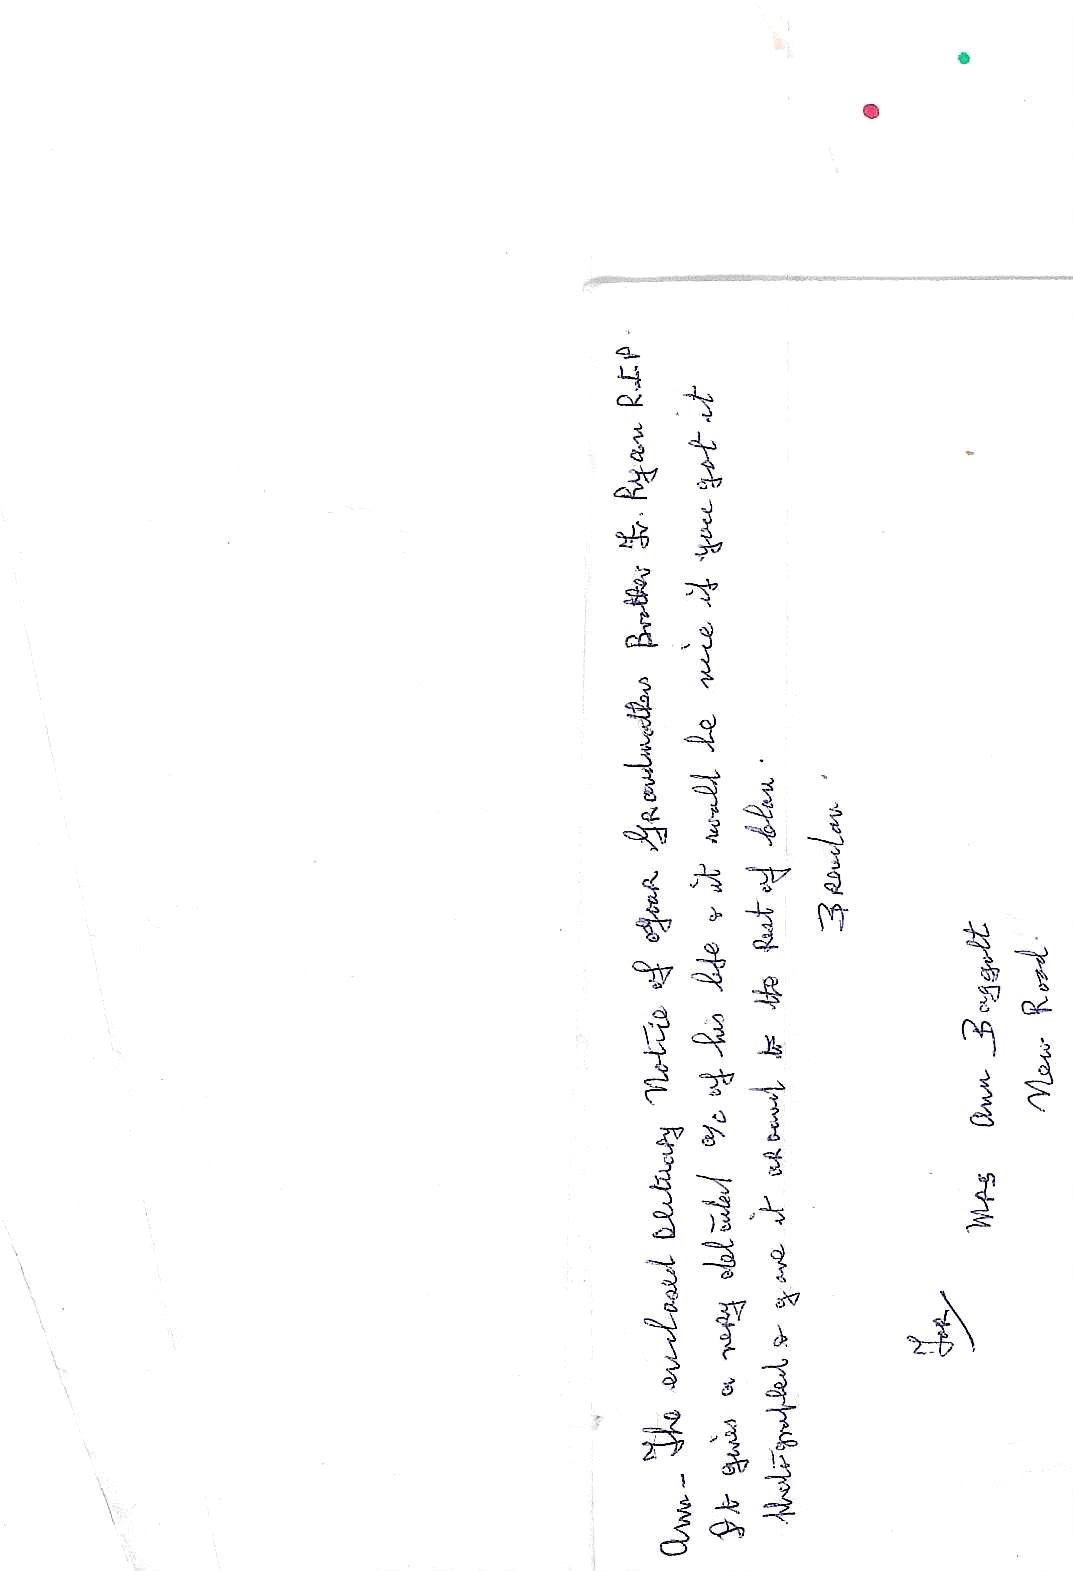 Ann - The enclosed Obituary Notice of your Grandmothers Brother Fr. Ryan R.I.P.
It gives a very detailed a/c of his life & it would be nice if you got it
photographed & gave it around to the Rest of Clan.
Brendan.
For/
Mrs Ann Baggott
New Road.